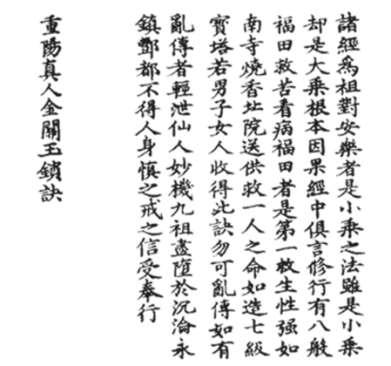 諸經爲祖對安樂者是小乘之法雖是小乘
却是大乘根本因果經中俱言修行有八般
福田救苦看病福田者是第一救生性强如
南寺燒香北院送供救一人之命如造七級
寳塔若男子女人收得此訣勿可亂傳如有
亂傳者輕泄仙人妙機九祖盡堕於沉淪永
鎮酆都不得人身慎之戒之信受奉行
重陽真人金關玉鎖訣